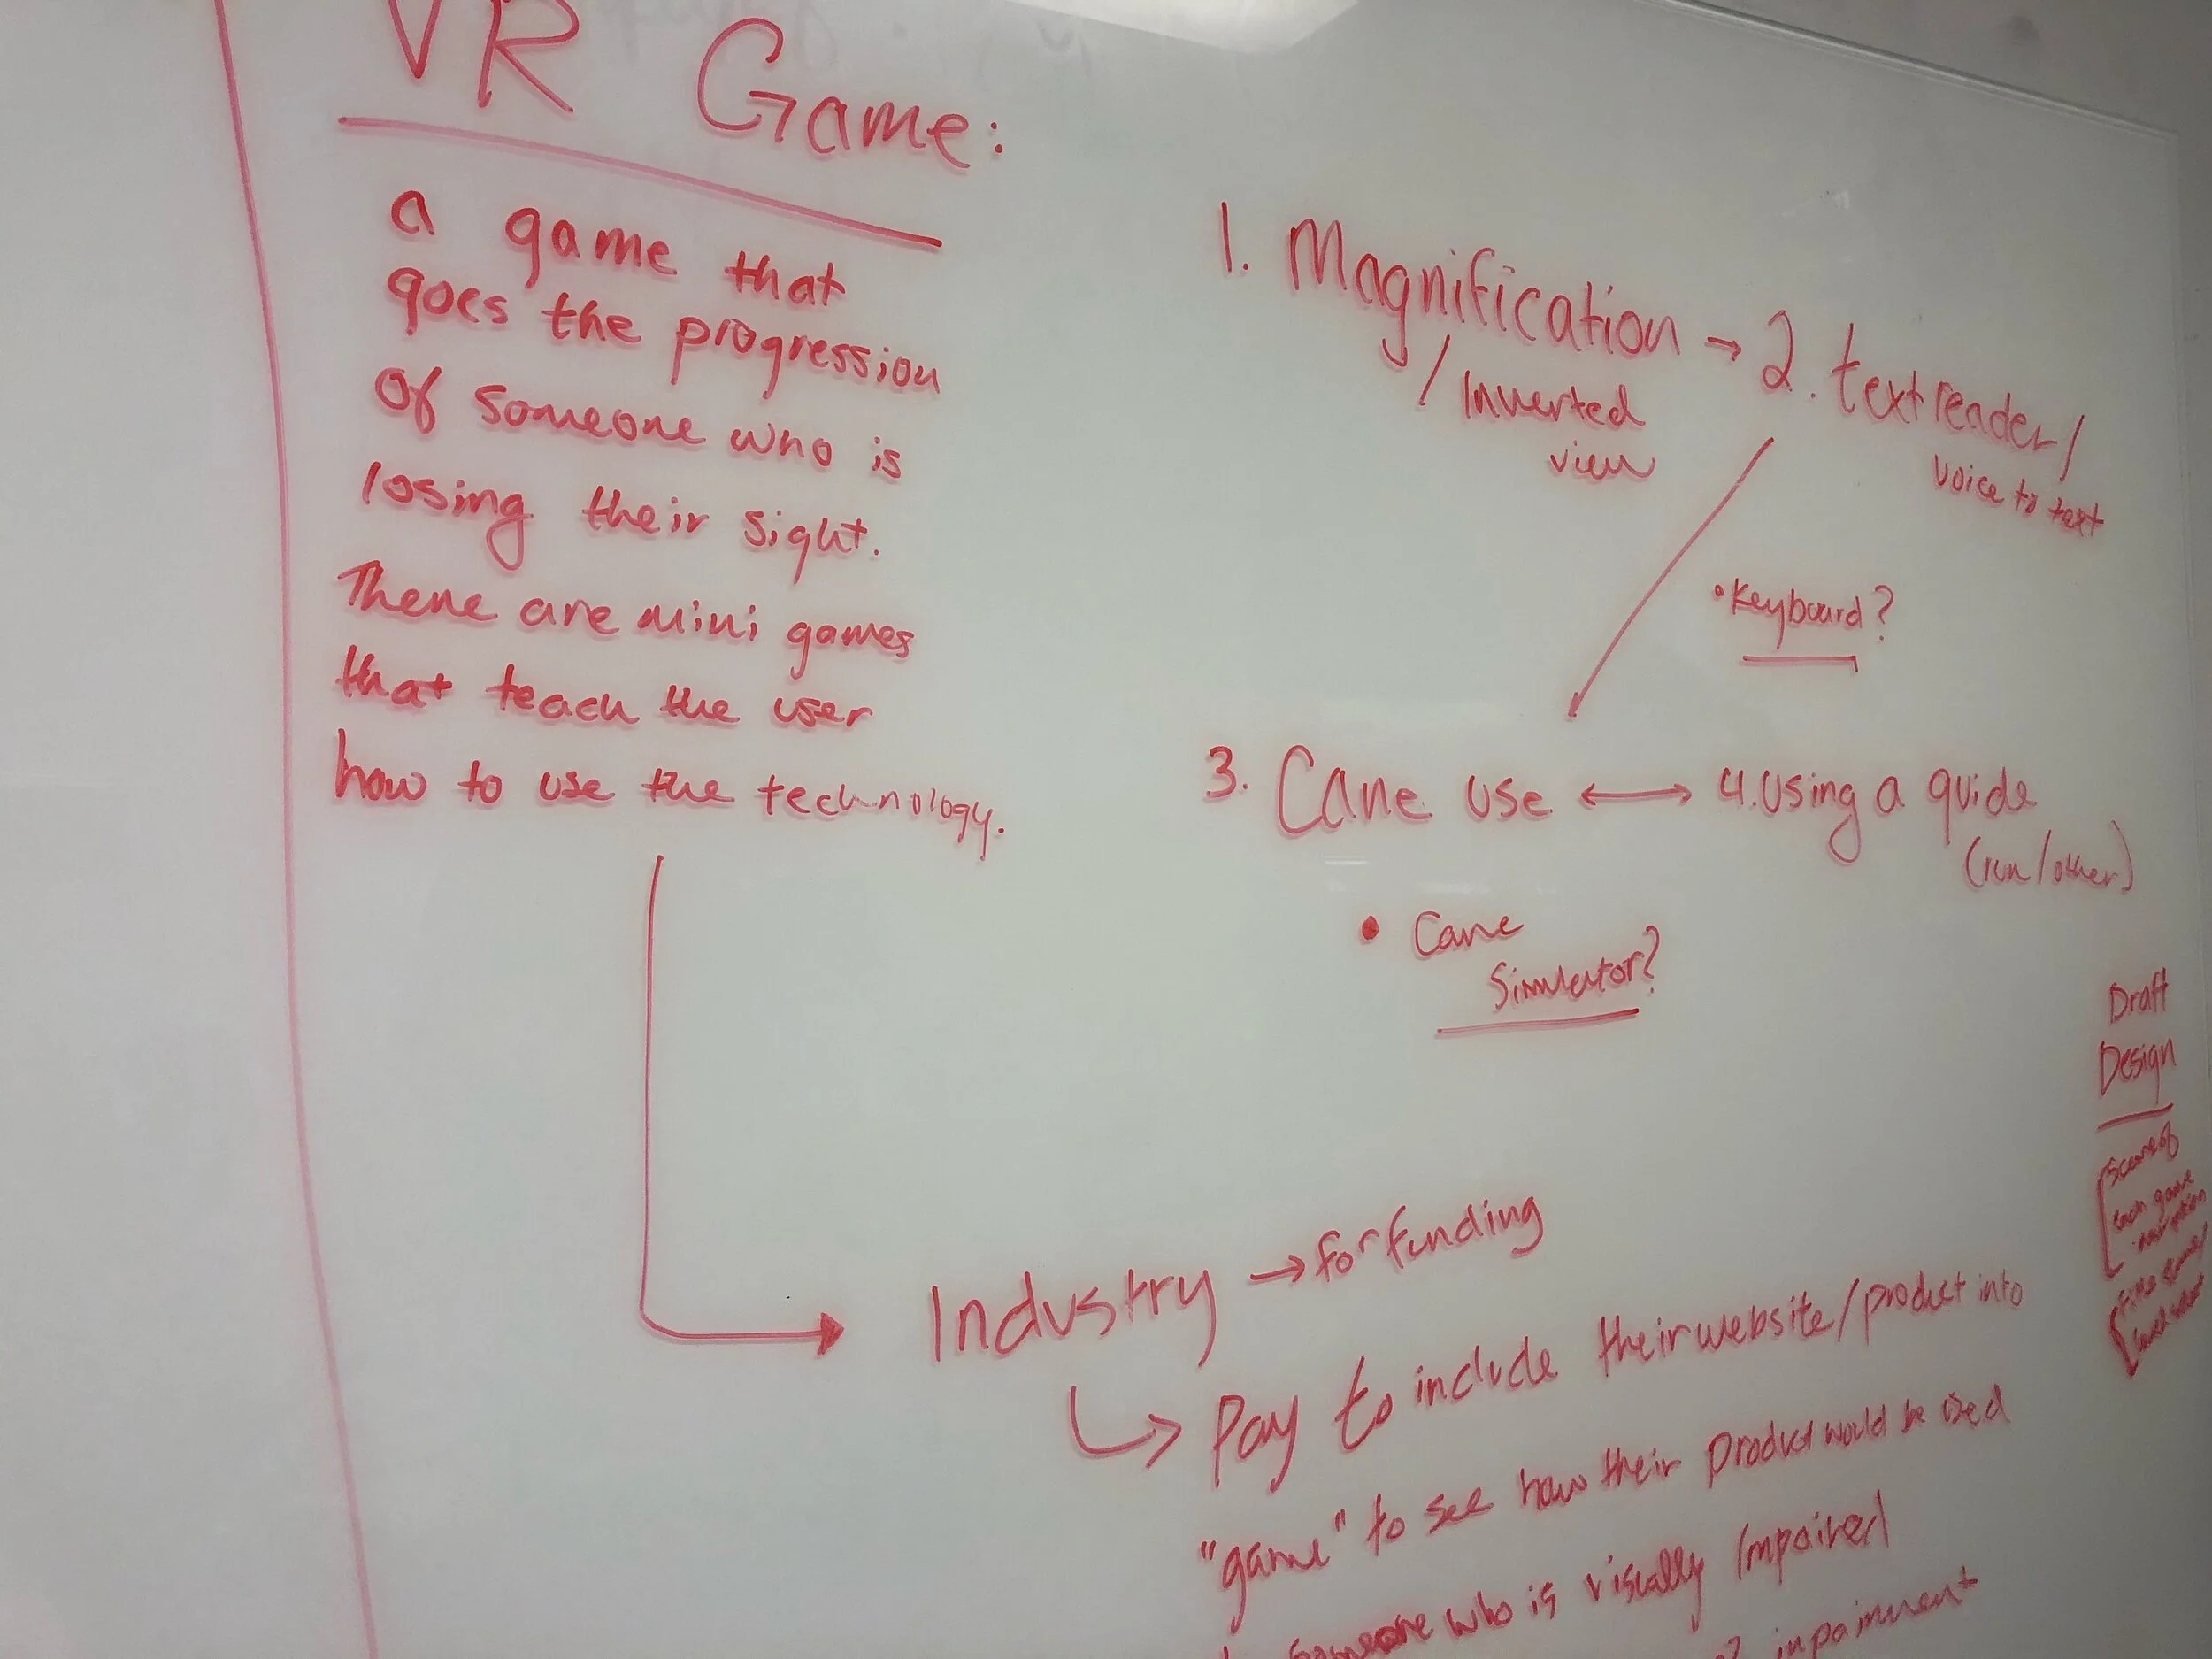 VR Game:
a game that
goes the progression
of someone who is
losing their sight.
There are mini games
that teach the user
how to use the technology.
1. Magnification → 2. text reader/
/ Inverted
view
voice to text
• Keyboard?
3. Cane use ↔ 4. Using a guide
(run/other)
• Cane
Simulator?
Industry → for funding
↳ Pay to include their website/product into
"game" to see how their product would be used
someone who is visually impaired
impairment
Draft
Design
Scene of
each game